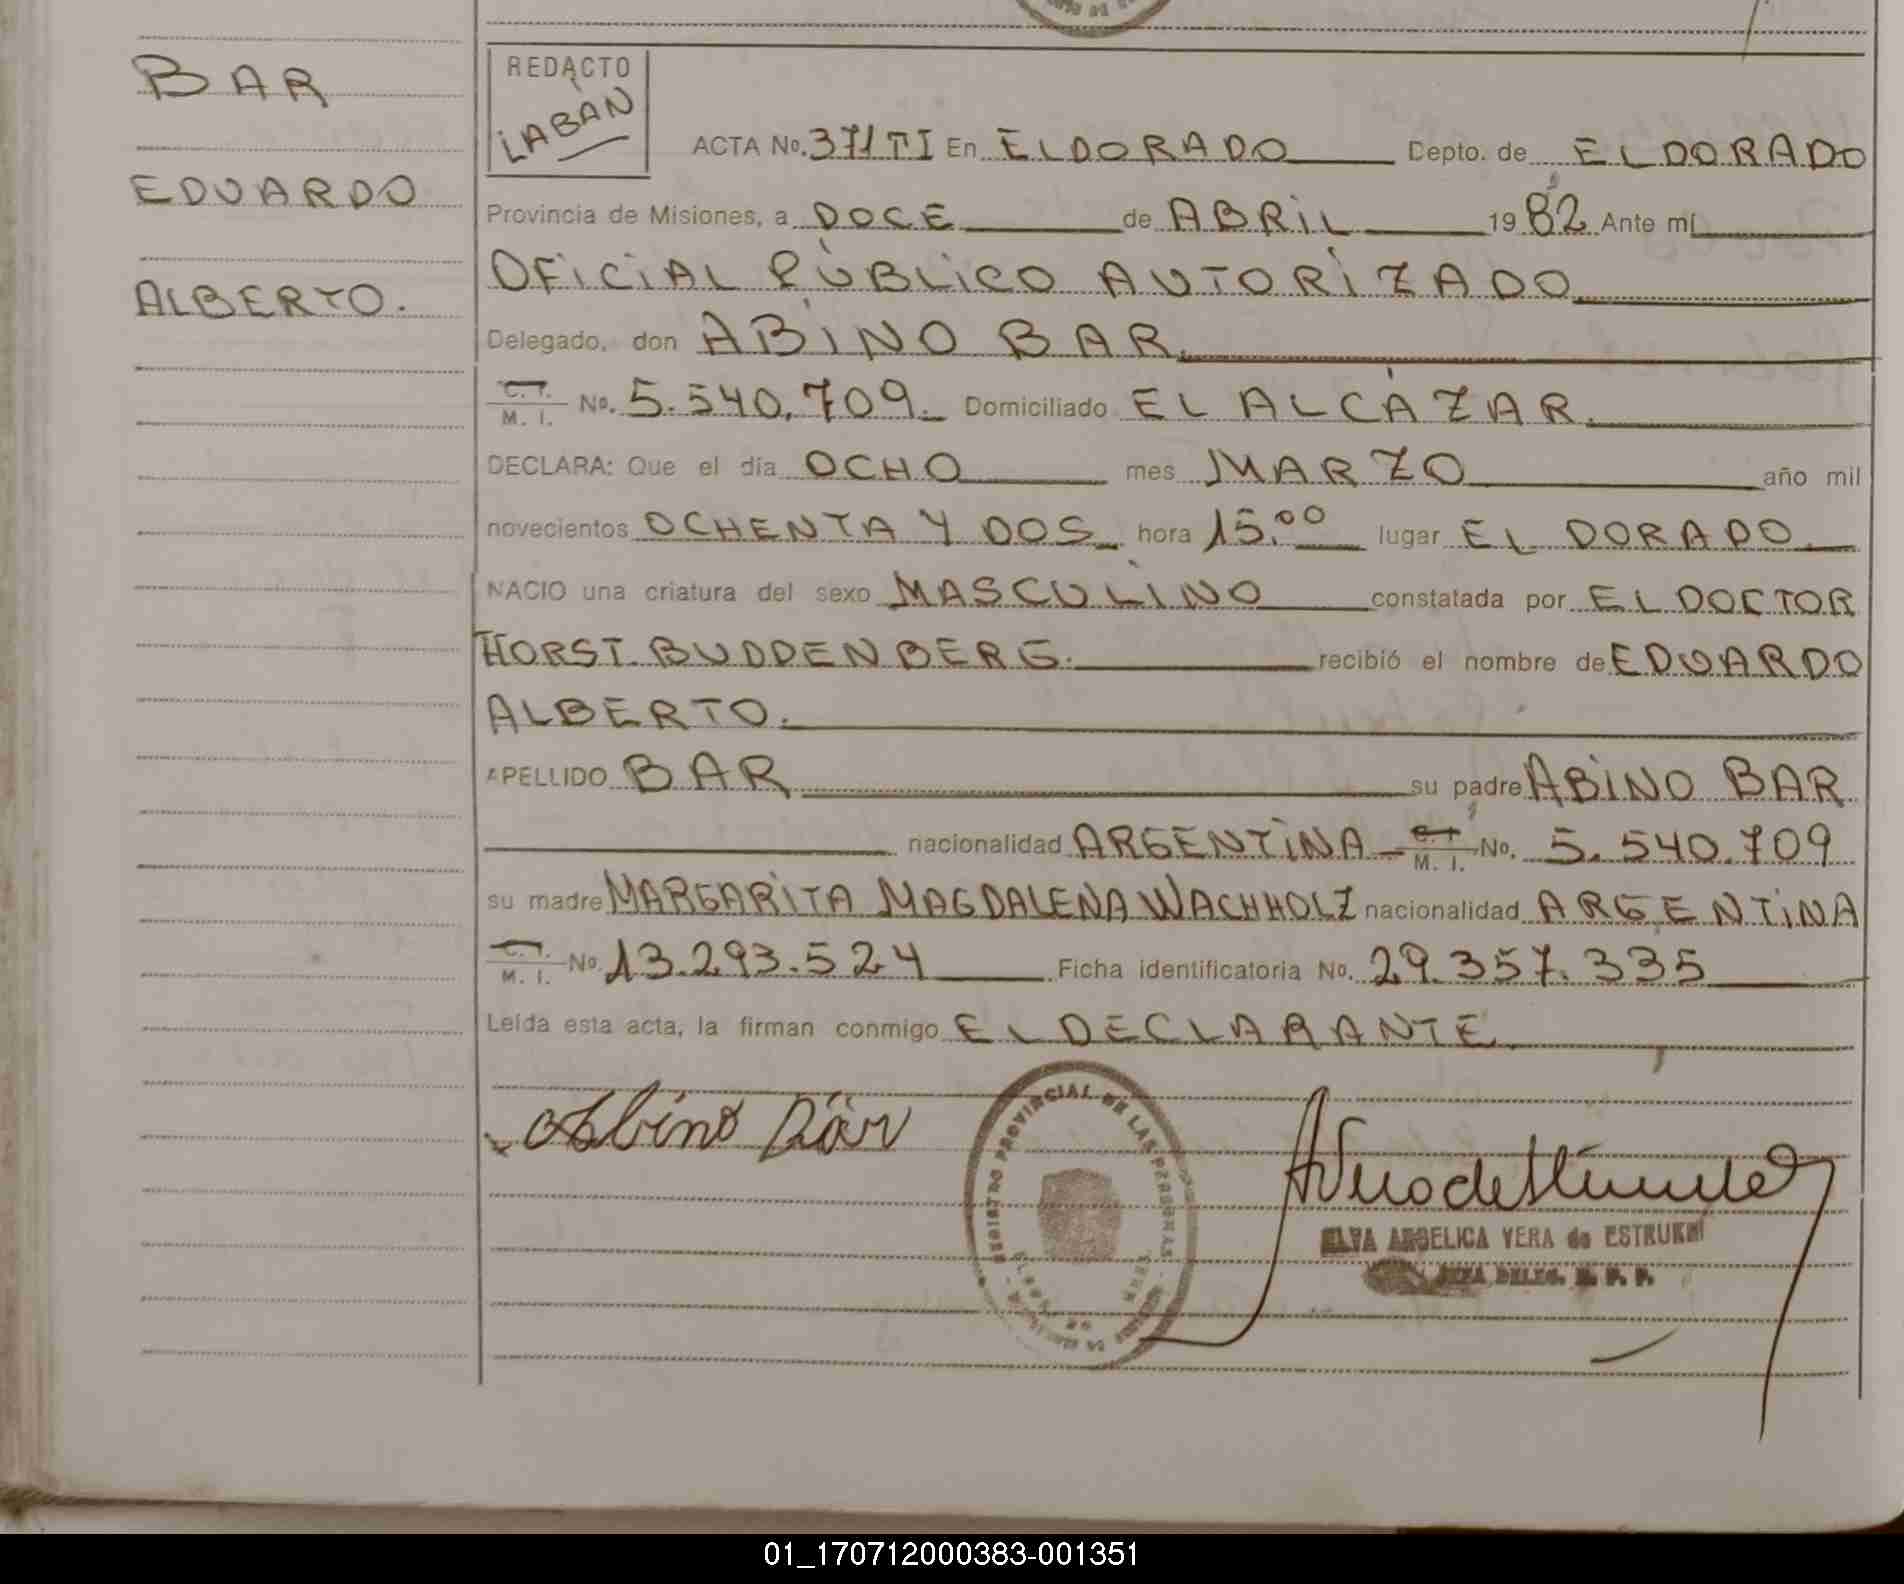 BAR
EDUARDO
ALBERTO.
REDACTO
LABÁN
ACTA No. 371 TI En ELDORADO Depto. de ELDORADO
Provincia de Misiones, a DOCE de ABRIL 1982 Ante mí
OFICIAL PÚBLICO AUTORIZADO
Delegado, don ABINO BAR
C. I. M. I. No. 5.540.709. Domiciliado EL ALCÁZAR.
DECLARA: Que el día OCHO mes MARZO año mil
novecientos OCHENTA Y DOS hora 15.00 lugar EL DORADO
NACIO una criatura del sexo MASCULINO constatada por EL DOCTOR
HORST BUDDENBERG. recibió el nombre de EDUARDO
ALBERTO.
APELLIDO BAR su padre ABINO BAR
nacionalidad ARGENTINA C. I. M. I. No. 5.540.709
su madre MARGARITA MAGDALENA WACHHOLZ nacionalidad ARGENTINA
C. I. M. I. No. 13.293.524 Ficha identificatoria No. 29.357.335
Leída esta acta, la firman conmigo EL DECLARANTE.
Abino Bär
REGISTRO PROVINCIAL DE LAS PERSONAS
ANGELICA VERA de ESTRUKEN
JEFA DELEG. R. P. P.
01_170712000383-001351